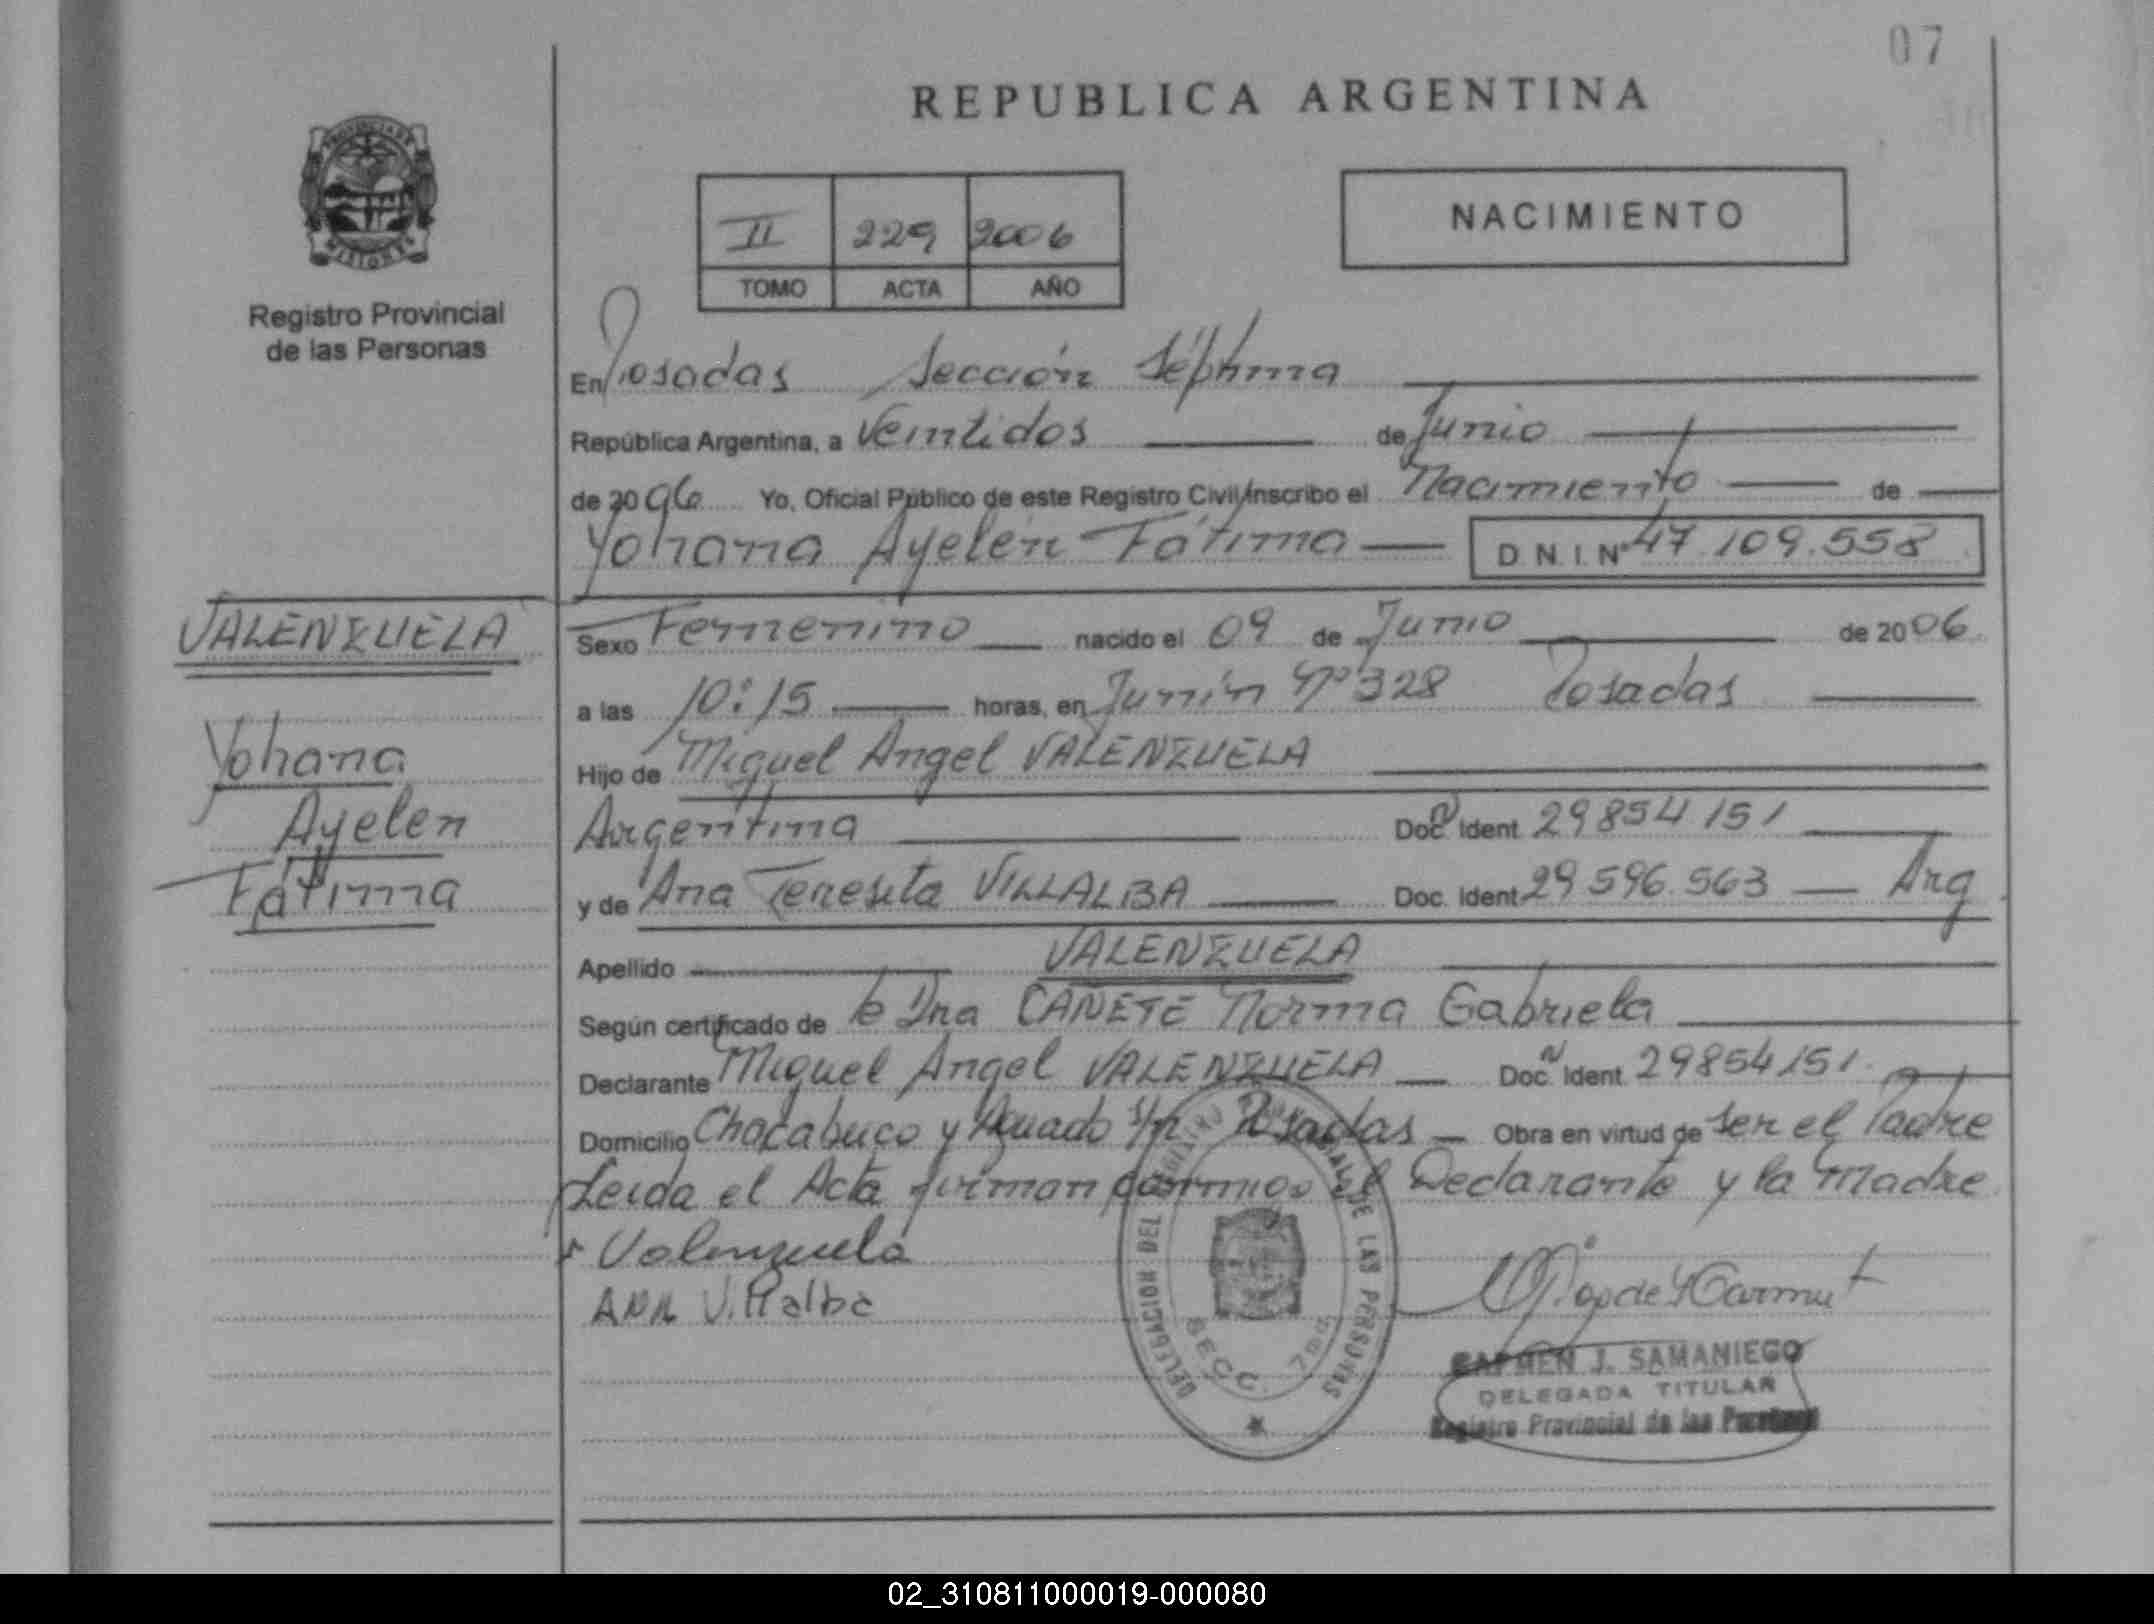 07
REPUBLICA ARGENTINA
PROVINCIA DE
MISIONES
Registro Provincial
de las Personas
II 229 2006
TOMO ACTA AÑO
NACIMIENTO
En Posadas Sección Séptima
República Argentina, a Veintidos de Junio
de 2006 Yo, Oficial Público de este Registro Civil, inscribo el Nacimiento de
Yohana Ayelén Fátima D.N.I. Nº 47.109.558
VALENZUELA
Yohana
Ayelen
Fátima
Sexo Femenino nacido el 09 de Junio de 2006
a las 10:15 horas, en Junín Nº 328 Posadas
Hijo de Miguel Angel VALENZUELA
Argentina Doc. Ident. 29854151
y de Ana Teresita VILLALBA Doc. Ident. 29.596.563 Arg
Apellido VALENZUELA
Según certificado de la Dra CAÑETE Norma Gabriela
Declarante Miguel Angel VALENZUELA Doc. Ident. 29854151
Domicilio Chacabuco y Aguado s/n Posadas Obra en virtud de ser el Padre
Leida el Acta firman conmigo el Declarante y la Madre
Valenzuela
ANA Villalba
DELEGACION DEL REGISTRO PROVINCIAL DE LAS PERSONAS
SECC. 7ma
CARMEN J. SAMANIEGO
DELEGADA TITULAR
Registro Provincial de las Personas
02_310811000019-000080